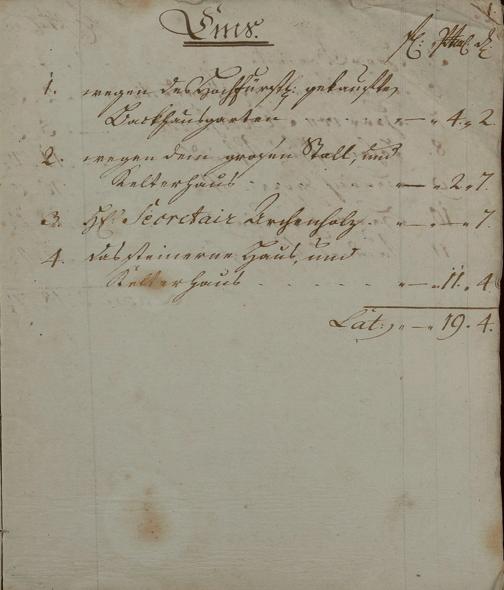 1.
Ems.
1. wegen des Hochfürstl: gekauften
Backhausgarten „ — „ 4 „ 2.
2. wegen dem grosen Stall, und
Kelterhaus - „ — „ 2 „ 7.
3. H: Secretair Archenholz „ — „ — „ 7.
4. das steinerne Haus, und
Kelterhaus - - - - - „ — „ 11. „ 4.
Lat: „ — „ 19. 4.